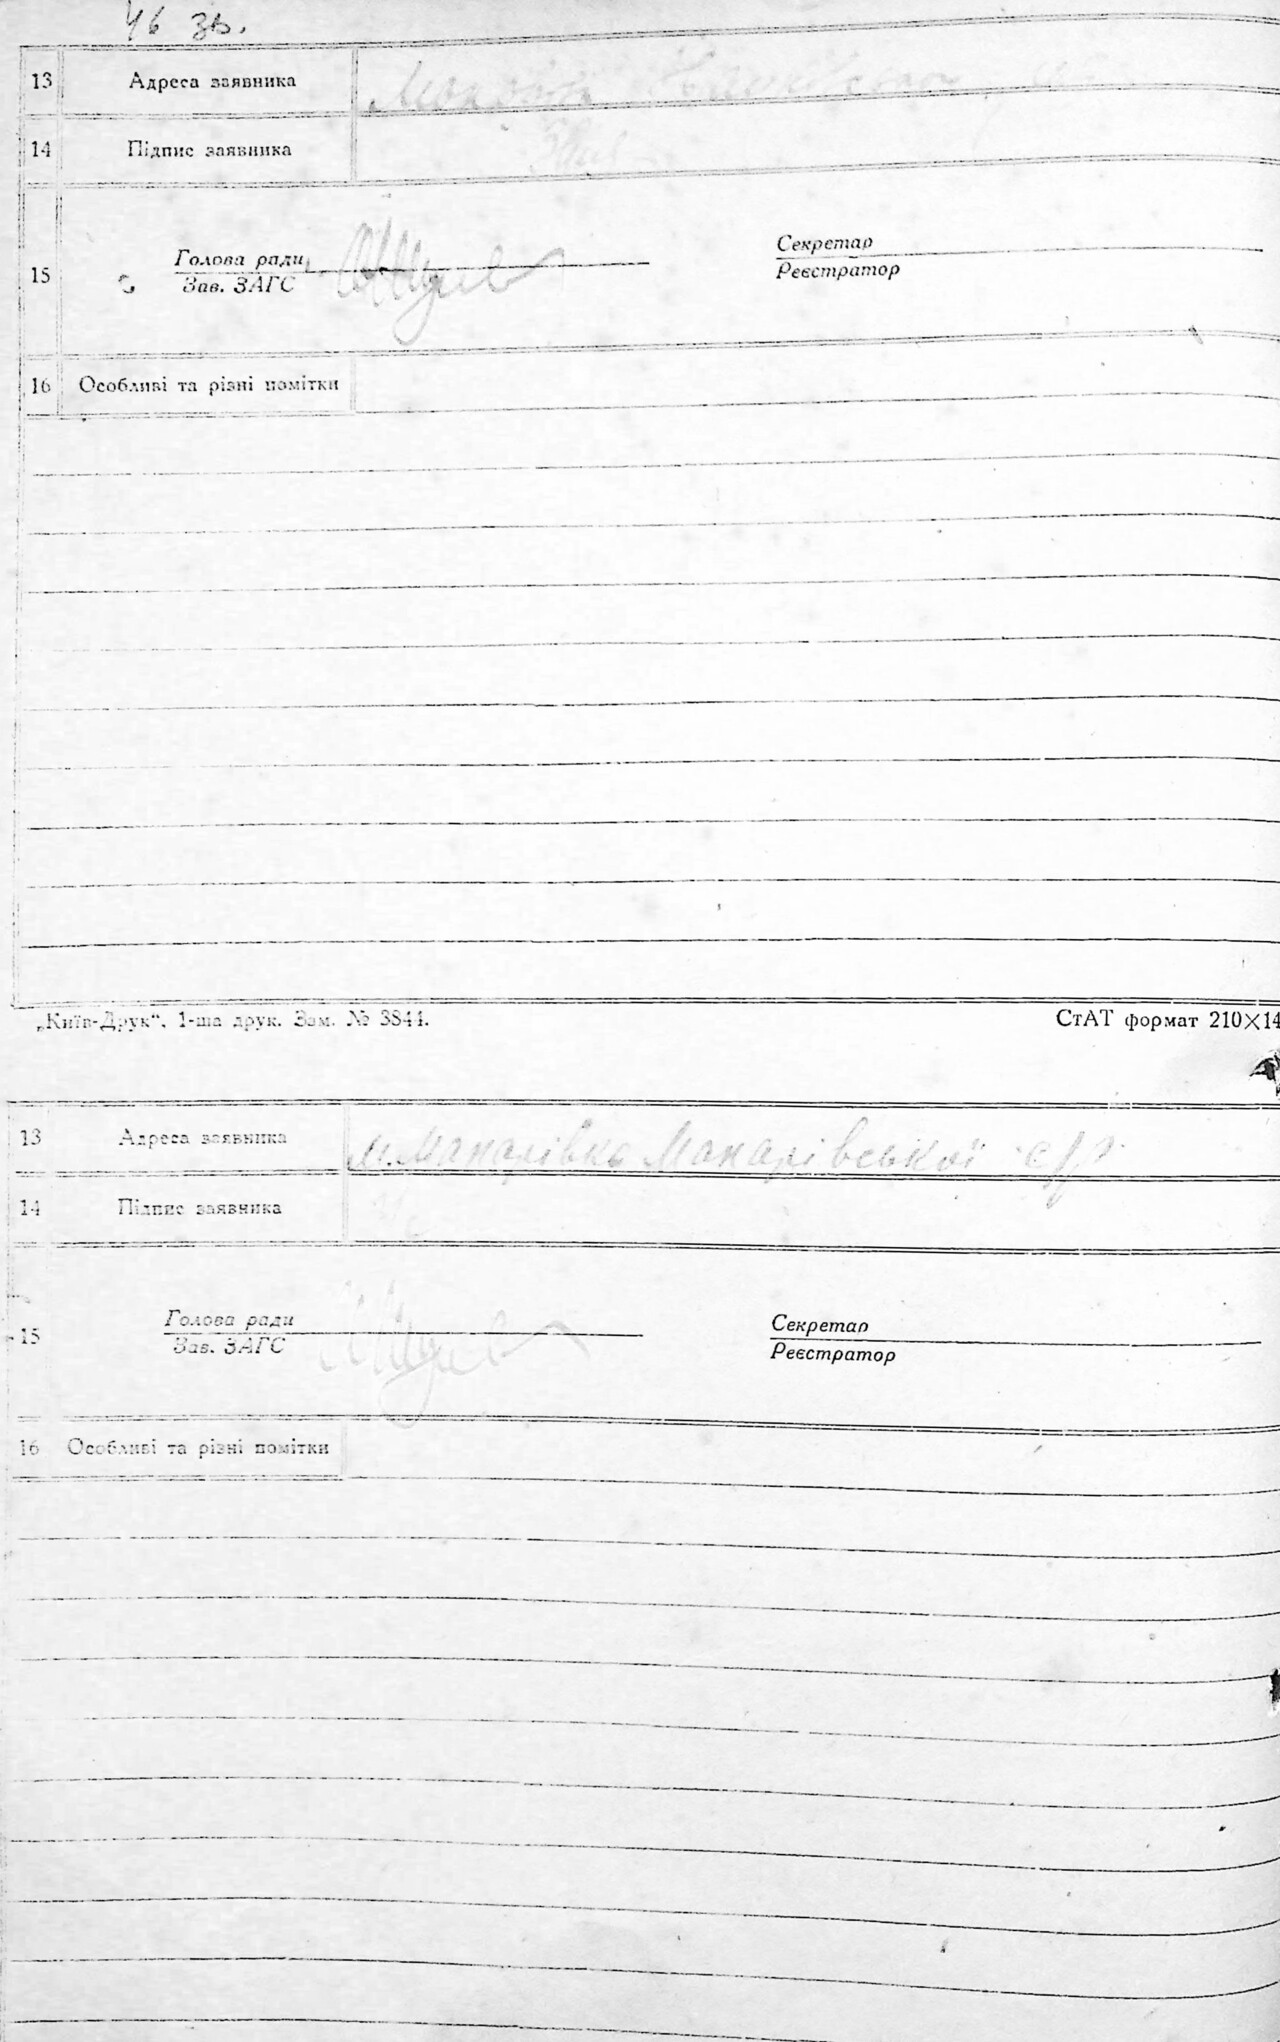 46 зв.
13 Адреса заявника
14 Підпис заявника
15 Голова ради Секретар
Зав. ЗАГС Реєстратор
16 Особливі та різні помітки
„Київ-Друк“, 1-ша друк. Зам. № 3844. СтАТ формат 210×14
13 Адреса заявника м. Макарівка Макарівської с/р
14 Підпис заявника
15 Голова ради Секретар
Зав. ЗАГС Реєстратор
16 Особливі та різні помітки